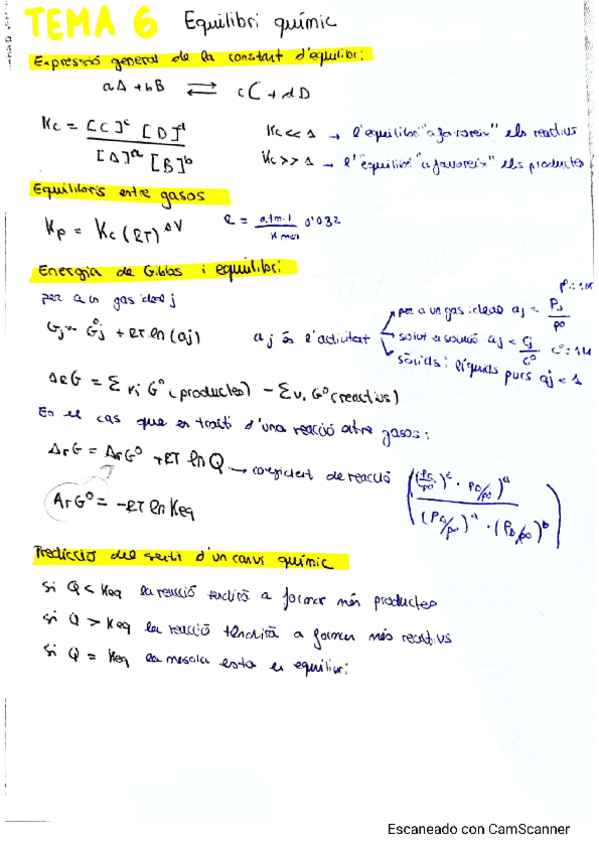 TEMA 6 Equilibri químic
Expressió general de la constant d'equilibri:
aA + bB ⇌ cC + dD
Kc = [C]^c [D]^d / [A]^a [B]^b
Kc << 1 → l'equilibri "afavoreix" els reactius
Kc >> 1 → l'equilibri "afavoreix" els productes
Equilibris entre gasos
Kp = Kc (RT)^ΔV
R = atm·l / K mol 0'082
Energia de Gibbs i equilibri
per a un gas ideal j
Gj = G°j + RT ln (aj)
aj és l'activitat
per a un gas ideal aj = Pj / p°
solut a solució aj = Cj / C° C° = 1M
sòlids i líquids purs aj = 1
ΔrG = Σ vi G° (productes) − Σ vi G° (reactius)
En el cas que es tracti d'una reacció entre gasos:
ΔrG = ΔrG° + RT ln Q → coeficient de reacció
((Pc/p°)^c · PD/p°)^a / (PA/p°)^a · (PB/p°)^b
ΔrG° = −RT ln Keq
Predicció del sentit d'un canvi químic
Si Q < Keq la reacció tendirà a formar més productes
Si Q > Keq la reacció tendirà a formar més reactius
Si Q = Keq la mescla esta en equilibri
Escaneado con CamScanner